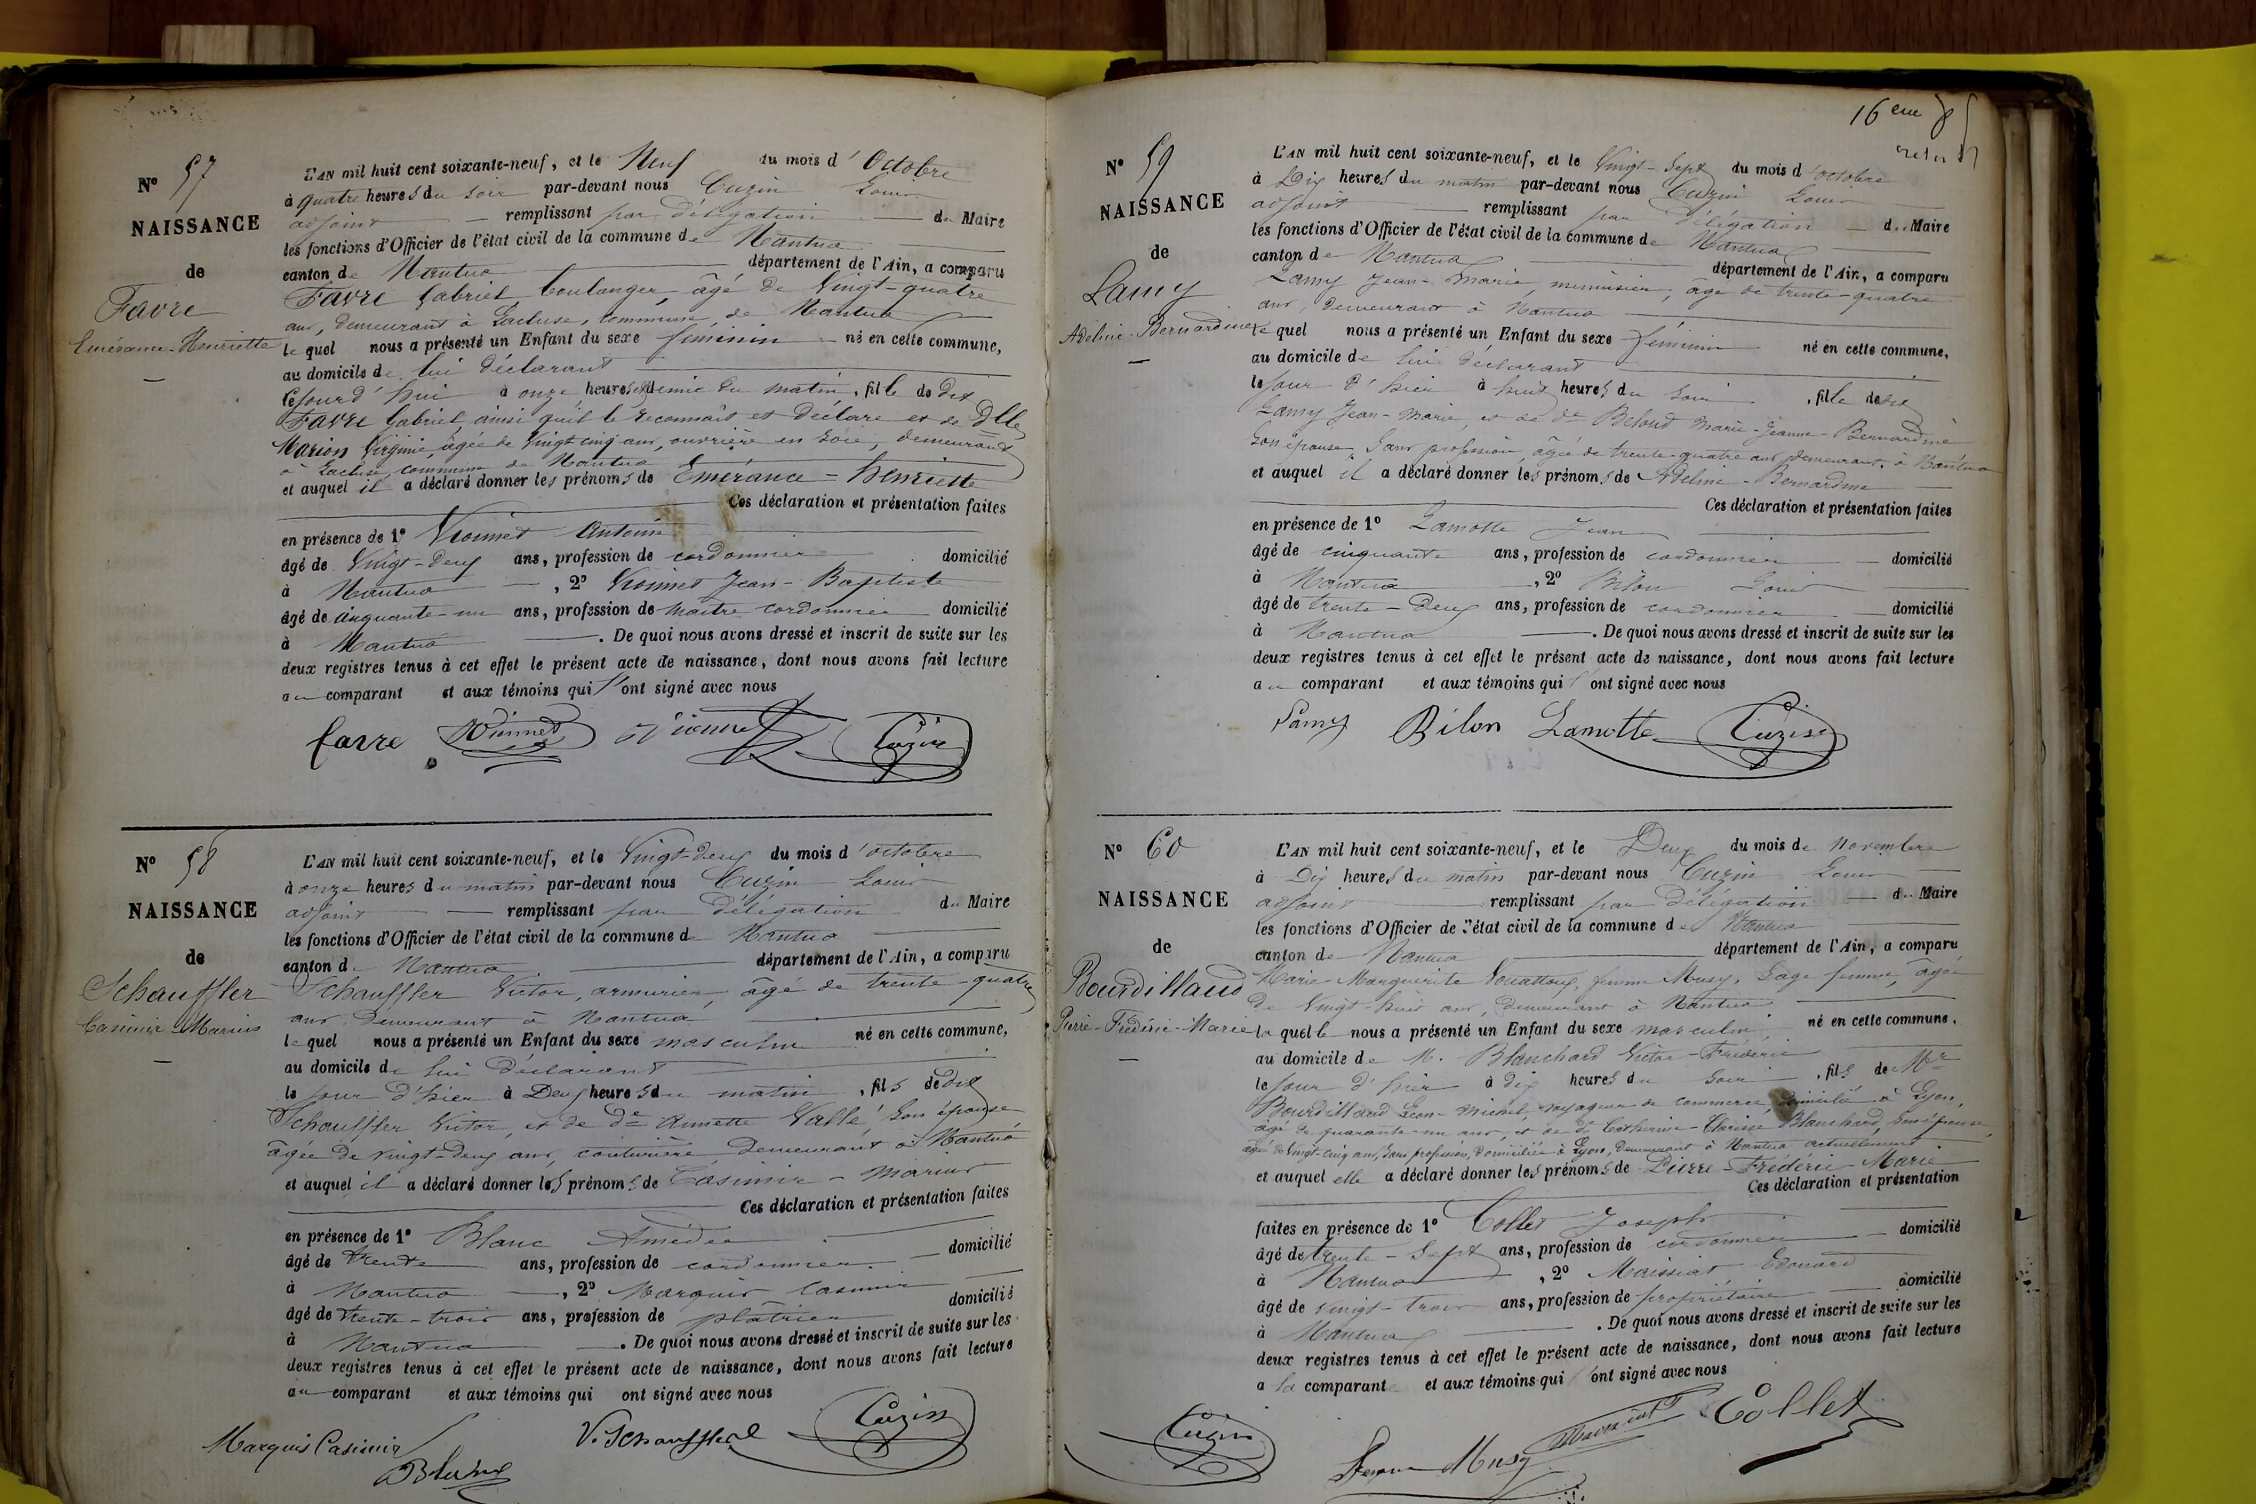 N° 57
NAISSANCE
de
Favre
Emérance-Henriette
L'AN mil huit cent soixante-neuf, et le Neuf du mois d'Octobre
à quatre heures du soir par-devant nous Cuzin Louis
adjoint remplissant par délégation du Maire
les fonctions d'Officier de l'état civil de la commune de Nantua
canton de Nantua département de l'Ain, a comparu
Favre Gabriel, boulanger, âgé de Vingt-quatre
ans, demeurant à Lacluse, commune de Nantua
lequel nous a présenté un Enfant du sexe féminin né en cette commune,
au domicile de lui déclarant
le jour d'hui à onze heures et demie du matin, fille de dit
Favre Gabriel, ainsi qu'il le reconnait et déclare et de Dlle
Marion Virginie, âgée de vingt cinq ans, ouvrière en soie, demeurant
à Lacluse commune de Nantua
et auquel il a déclaré donner les prénoms de Emérance = Henriette
Ces déclaration et présentation faites
en présence de 1° Vionnet Antonin
âgé de Vingt-deux ans, profession de cordonnier domicilié
à Nantua, 2° Vionnet Jean-Baptiste
âgé de cinquante-un ans, profession de maître cordonnier domicilié
à Nantua. De quoi nous avons dressé et inscrit de suite sur les
deux registres tenus à cet effet le présent acte de naissance, dont nous avons fait lecture
au comparant et aux témoins qui l'ont signé avec nous
favre Vionnet Vionnet Cuzin
N° 58
NAISSANCE
de
Schauffler
Casimir-Marius
L'AN mil huit cent soixante-neuf, et le Vingt-deux du mois d'octobre
à onze heures du matin par-devant nous Cuzin Louis
adjoint remplissant par délégation du Maire
les fonctions d'Officier de l'état civil de la commune de Nantua
canton de Nantua département de l'Ain, a comparu
Schauffler Victor, armurier, âgé de trente-quatre
ans, demeurant à Nantua
lequel nous a présenté un Enfant du sexe masculin né en cette commune,
au domicile de lui déclarant
le jour d'hier à Deux heures du matin, fils de dit
Schauffler Victor, et de de Annette Vallé, son épouse
âgée de vingt-deux ans, couturière, demeurant à Nantua
et auquel il a déclaré donner les prénoms de Casimir-Marius
Ces déclaration et présentation faites
en présence de 1° Blanc Amédée
âgé de trente ans, profession de cordonnier domicilié
à Nantua, 2° Marquis Casimir
âgé de trente-trois ans, profession de plâtrier domicilié
à Nantua. De quoi nous avons dressé et inscrit de suite sur les
deux registres tenus à cet effet le présent acte de naissance, dont nous avons fait lecture
au comparant et aux témoins qui ont signé avec nous
Marquis Casimir V. Schauffler Cuzin
16eme
N° 59
NAISSANCE
de
Lamy
Adeline-Bernardine
L'AN mil huit cent soixante-neuf, et le Vingt-Sept du mois d'octobre
à Dix heures du matin par-devant nous Cuzin Louis
adjoint remplissant par délégation du Maire
les fonctions d'Officier de l'état civil de la commune de Nantua
canton de Nantua département de l'Ain, a comparu
Lamy Jean-Marie, menuisier, âgé de trente-quatre
ans, demeurant à Nantua
lequel nous a présenté un Enfant du sexe féminin né en cette commune,
au domicile de lui déclarant
le jour d'hier à huit heures du soir, fille de dit
Lamy Jean-Marie, et de de Beloud Marie-Jeanne-Bernardine
Son épouse, Sans profession, âgée de trente-quatre ans, demeurant à Nantua
et auquel il a déclaré donner les prénoms de Adeline-Bernardine
Ces déclaration et présentation faites
en présence de 1° Lamotte Jean
âgé de cinquante ans, profession de cordonnier domicilié
à Nantua, 2° Bilon Louis
âgé de trente-deux ans, profession de cordonnier domicilié
à Nantua. De quoi nous avons dressé et inscrit de suite sur les
deux registres tenus à cet effet le présent acte de naissance, dont nous avons fait lecture
au comparant et aux témoins qui l'ont signé avec nous
Lamy Bilon Lamotte Cuzin
N° 60
NAISSANCE
de
Bourdillaud
Pierre-Frédéric-Marie
L'AN mil huit cent soixante-neuf, et le Deux du mois de Novembre
à Dix heures du matin par-devant nous Cuzin Louis
adjoint remplissant par délégation du Maire
les fonctions d'Officier de l'état civil de la commune de Nantua
canton de Nantua département de l'Ain, a comparu
Marie-Marguerite femme Musy, Sage femme, âgée
de Vingt-huit ans, demeurant à Nantua
laquelle nous a présenté un Enfant du sexe masculin né en cette commune,
au domicile de M. Blanchard Victor-Frédéric
le jour d'hier à dix heures du soir, fils de Mr
Bourdillaud Léon-Michel, voyageur de commerce, domicilié à Lyon,
âgé de quarante-un ans, et de de Catherine-Clarisse Blanchard, son épouse,
âgée de vingt-cinq ans, Sans profession, domiciliée à Lyon, demeurant à Nantua actuellement
et auquel elle a déclaré donner les prénoms de Pierre-Frédéric-Marie
Ces déclaration et présentation
faites en présence de 1° Collet Joseph
âgé de trente-sept ans, profession de cordonnier domicilié
à Nantua, 2° Maissiat Edouard
âgé de vingt-trois ans, profession de propriétaire domicilié
à Nantua. De quoi nous avons dressé et inscrit de suite sur les
deux registres tenus à cet effet le présent acte de naissance, dont nous avons fait lecture
a la comparante et aux témoins qui l'ont signé avec nous
Cuzin Femme Musy Collet